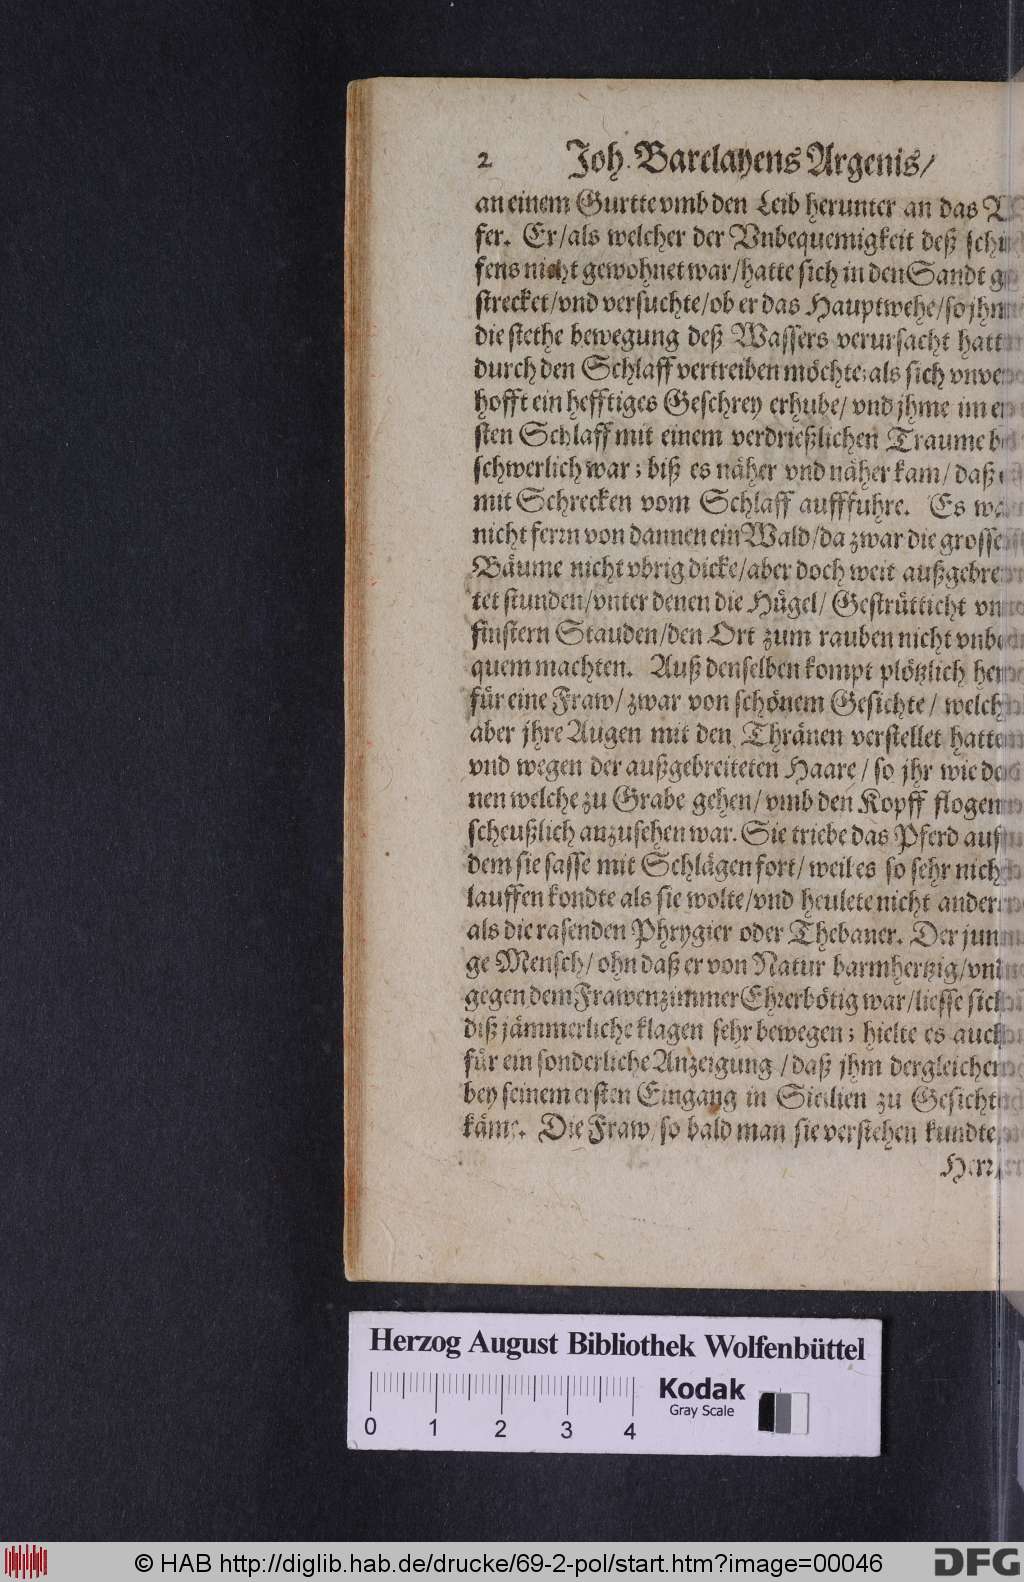 2 Joh. Barclayens Argenis/
an einem Gurtte vmb den Leib herunter an das
fer. Er/als welcher der Vnbequemigkeit deß schif
fens nicht gewohnet war/hatte sich in den Sandt ge
strecket/vnd versuchte/ob er das Hauptwehe/so jhm
die stethe bewegung deß Wassers verursacht hatt
durch den Schlaff vertreiben möchte; als sich vnver
hofft ein hefftiges Geschrey erhube/ vnd jhme im er
sten Schlaff mit einem verdrießlichen Traume be
schwerlich war; biß es näher vnd näher kam/ daß
mit Schrecken vom Schlaff auffuhre. Es war
nicht ferrn von dannen ein Wald/da zwar die grosse
Bäume nicht vbrig dicke/aber doch weit außgebrei
tet stunden/vnter denen die Hügel/ Gestrütticht vn
finstern Stauden/den Ort zum rauben nicht vnbe
quem machten. Auß denselben kompt plötzlich her
für eine Fraw/ zwar von schönem Gesichte/ welch
aber jhre Augen mit den Thränen verstellet hatte
vnd wegen der außgebreiteten Haare/ so jhr wie de
nen welche zu Grabe gehen/ vmb den Kopff flogen
scheußlich anzusehen war. Sie triebe das Pferd auf
dem sie sasse mit Schlägen fort/ weil es so sehr nich
lauffen kondte als sie wolte/vnd heulete nicht ander
als die rasenden Phrygier oder Thebaner. Der jun
ge Mensch/ ohn daß er von Natur barmhertzig/vnd
gegen dem Frawenzimmer Ehrerbötig war/liesse sich
diß jämmerliche klagen sehr bewegen; hielte es auch
für ein sonderliche Anzeigung/daß jhm dergleichen
bey seinem ersten Eingang in Sicilien zu Gesicht
käme. Die Fraw/so bald man sie verstehen kundte
Herr/
Herzog August Bibliothek Wolfenbüttel
Kodak
Gray Scale
0 1 2 3 4
© HAB http://diglib.hab.de/drucke/69-2-pol/start.htm?image=00046
DFG